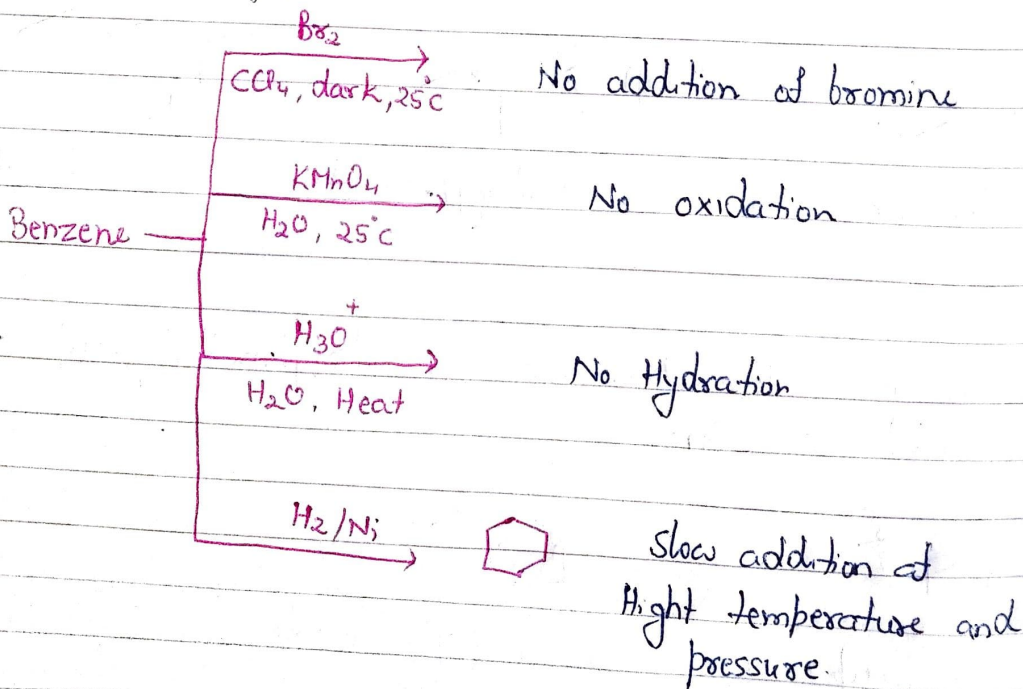 Br2
CCl4, dark, 25°C
No addition of bromine
KMnO4
H2O, 25°C
No oxidation
Benzene
H3O+
H2O, Heat
No Hydration
H2/Ni
Slow addition at
Hight temperature and
pressure.